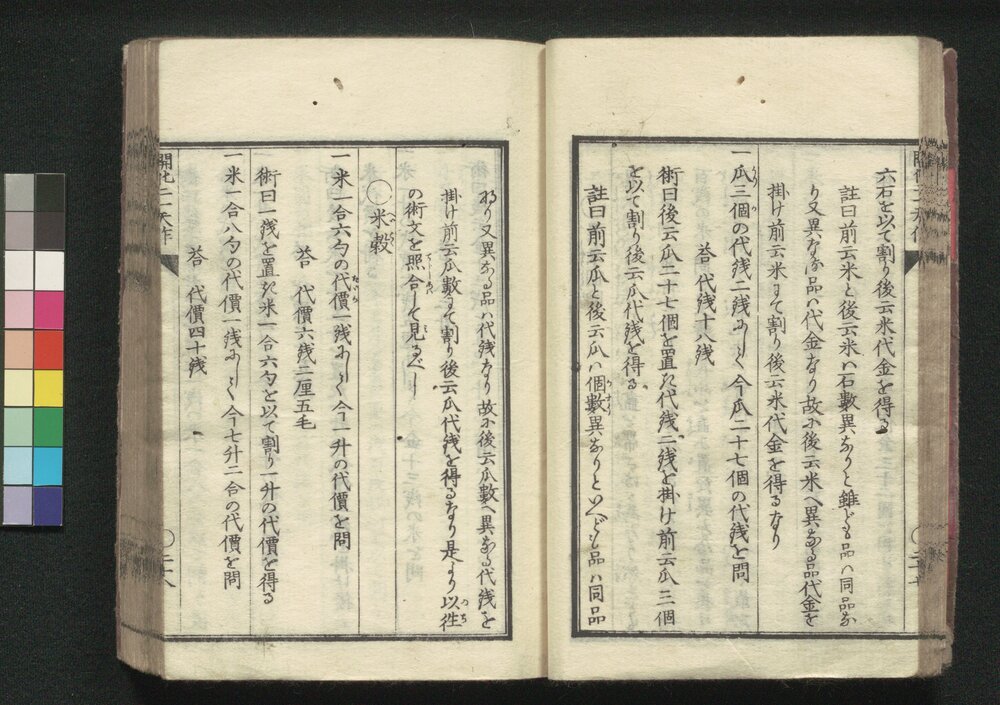 六石を以て割り後云米代金を得る
註曰前云米と後云米ハ石數異なりと雖ども品ハ同品な
り又異なる品ハ代金なり故に後云米へ異なる品代金を
掛け前云米にて割り後云米代金を得るなり
一瓜三個の代銭二銭にして今瓜二十七個の代銭を問
荅 代銭十八銭
術曰後云瓜二十七個を置き代銭二銭を掛け前云瓜三個
を以て割り後云瓜代銭を得る
註曰前云瓜と後云瓜ハ個數異なりといへども品ハ同品
なり又異なる品ハ代銭なり故に後云瓜數へ異なる代銭を
掛け前云瓜數にて割り後云瓜代銭を得るなり是より以徃
の術文を照合して見るべし
〇米穀
一米一合六勺の代價一銭にして今一升の代價を問
荅 代價六銭二厘五毛
術曰一銭を置き米一合六勺を以て割り一升の代價を得る
一米一合八勺の代價一銭にして今七升二合の代價を問
荅 代價四十銭
開化二一天作
〇二十八